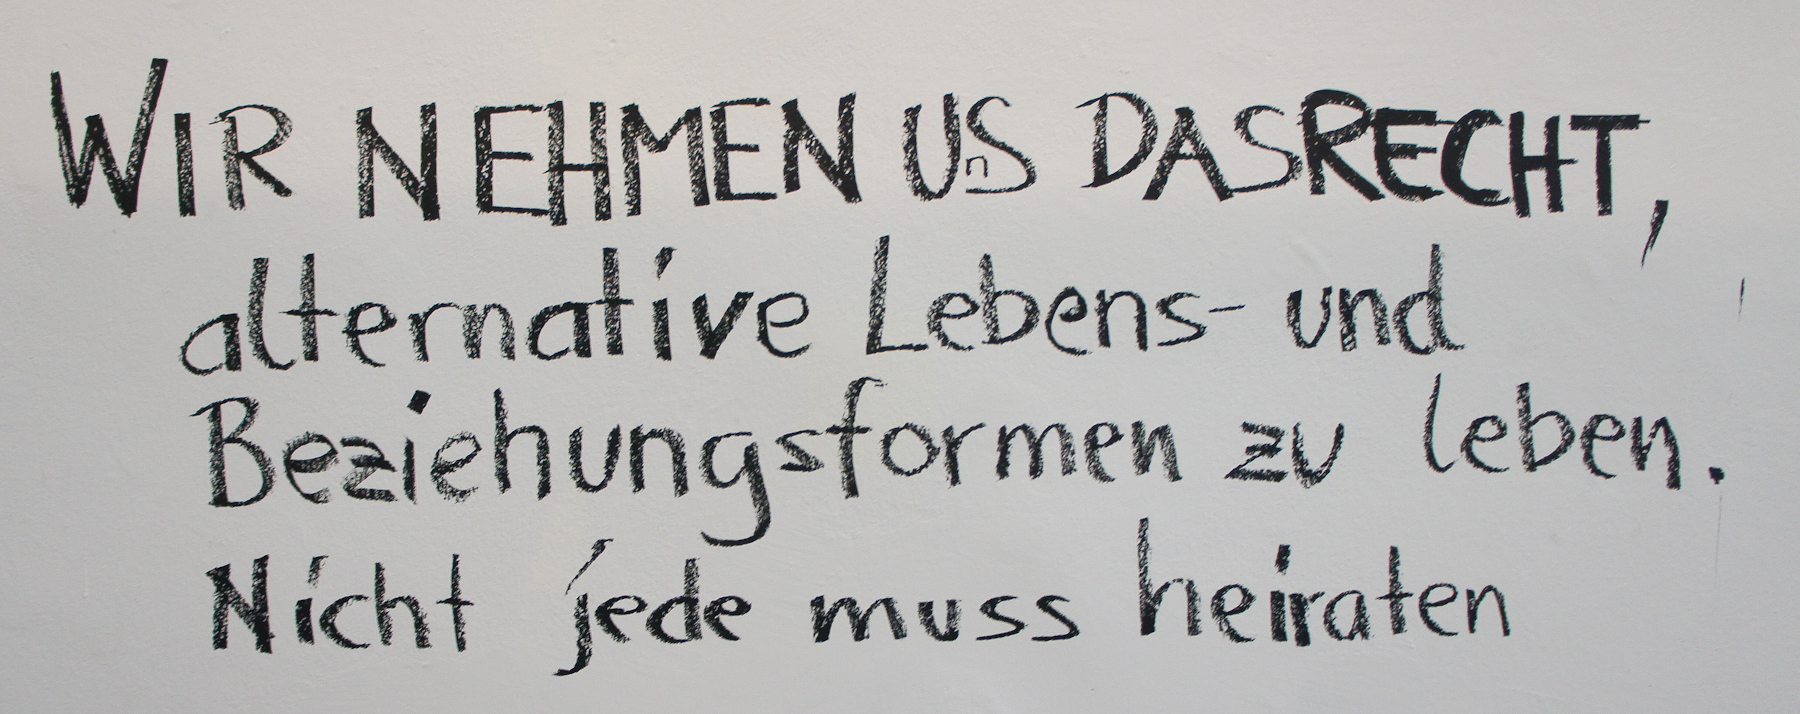 WIR NEHMEN UnS DAS RECHT,
alternative Lebens- und
Beziehungsformen zu leben.
Nicht jede muss heiraten